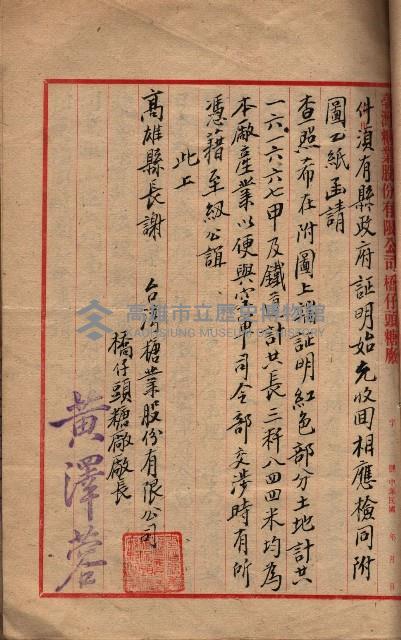 台灣糖業股份有限公司橋仔頭糖廠
件須有縣政府証明始允收回相應檢同附
圖乙紙函請
查照希在附圖上端証明紅色部分土地計共
一六.六六六七甲及鐵道計共長三粁八四四米均為
本廠產業以便與空軍司令部交涉時有所
憑藉至紉公誼
此上
高雄縣長謝
台灣糖業股份有限公司
橋仔頭糖廠廠長
黃澤蒼
高雄市立歷史博物館
KAOHSIUNG MUSEUM OF HISTORY
字
號
中華民國
年
月
日